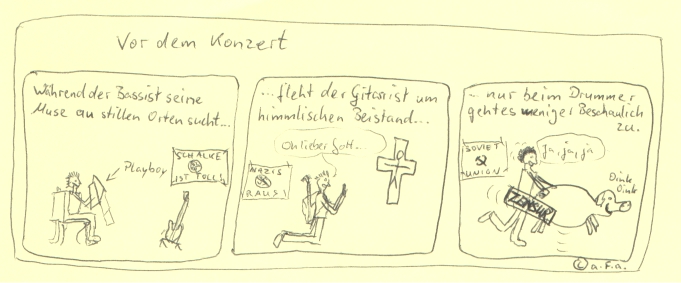 Vor dem Konzert
Während der Bassist seine
Muse an stillen Orten sucht...
Playboy
SCHALKE
IST TOLL!
...fleht der Gitarrist um
himmlischen Beistand...
Oh lieber Gott...
NAZIS
RAUS!
...nur beim Drummer
gehtes weniger Beschaulich
zu.
SOVIET
UNION
Ja, ja, ja
Oink
Oink
ZENSUR
© a.F.a.